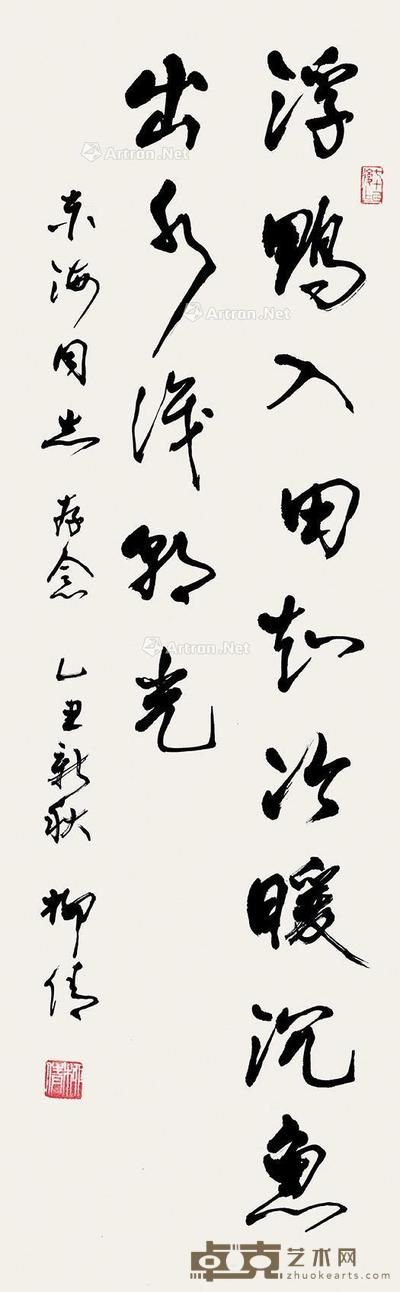 浮鸭入田知冷暖沉鱼
出水識光
东海同志 存念 乙丑新秋 柳倩
Artron.Net
Artron.Net
Artron.Net
Artron.Net
卓克艺术网
zhuokearts.com